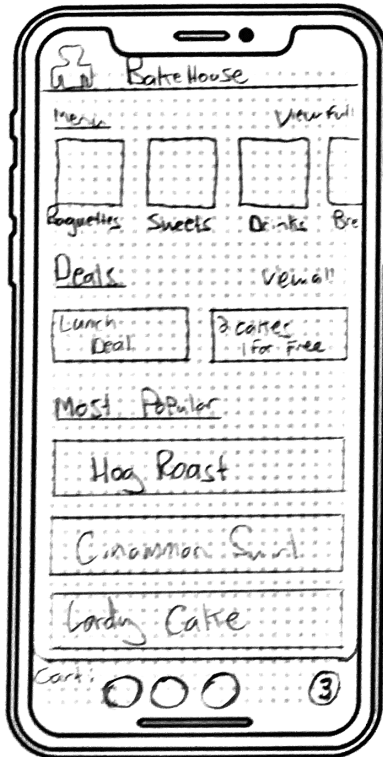 BakeHouse
Menu View full
Baguettes Sweets Drinks Bre
Deals Veiw all
Lunch
Deal
1 For Free
Most Popular
Hog Roast
Cinammon Swirl
Lardy Cake
Cart:
3